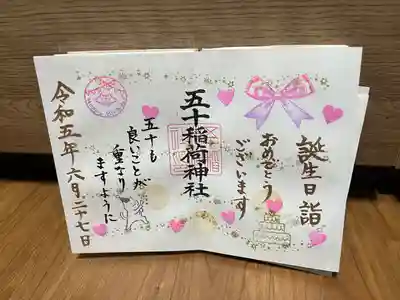 誕生日詣
おめでとう
ございます
五十稲荷神社
五十も
良いことが
重なり
ますように
令和五年六月二十七日